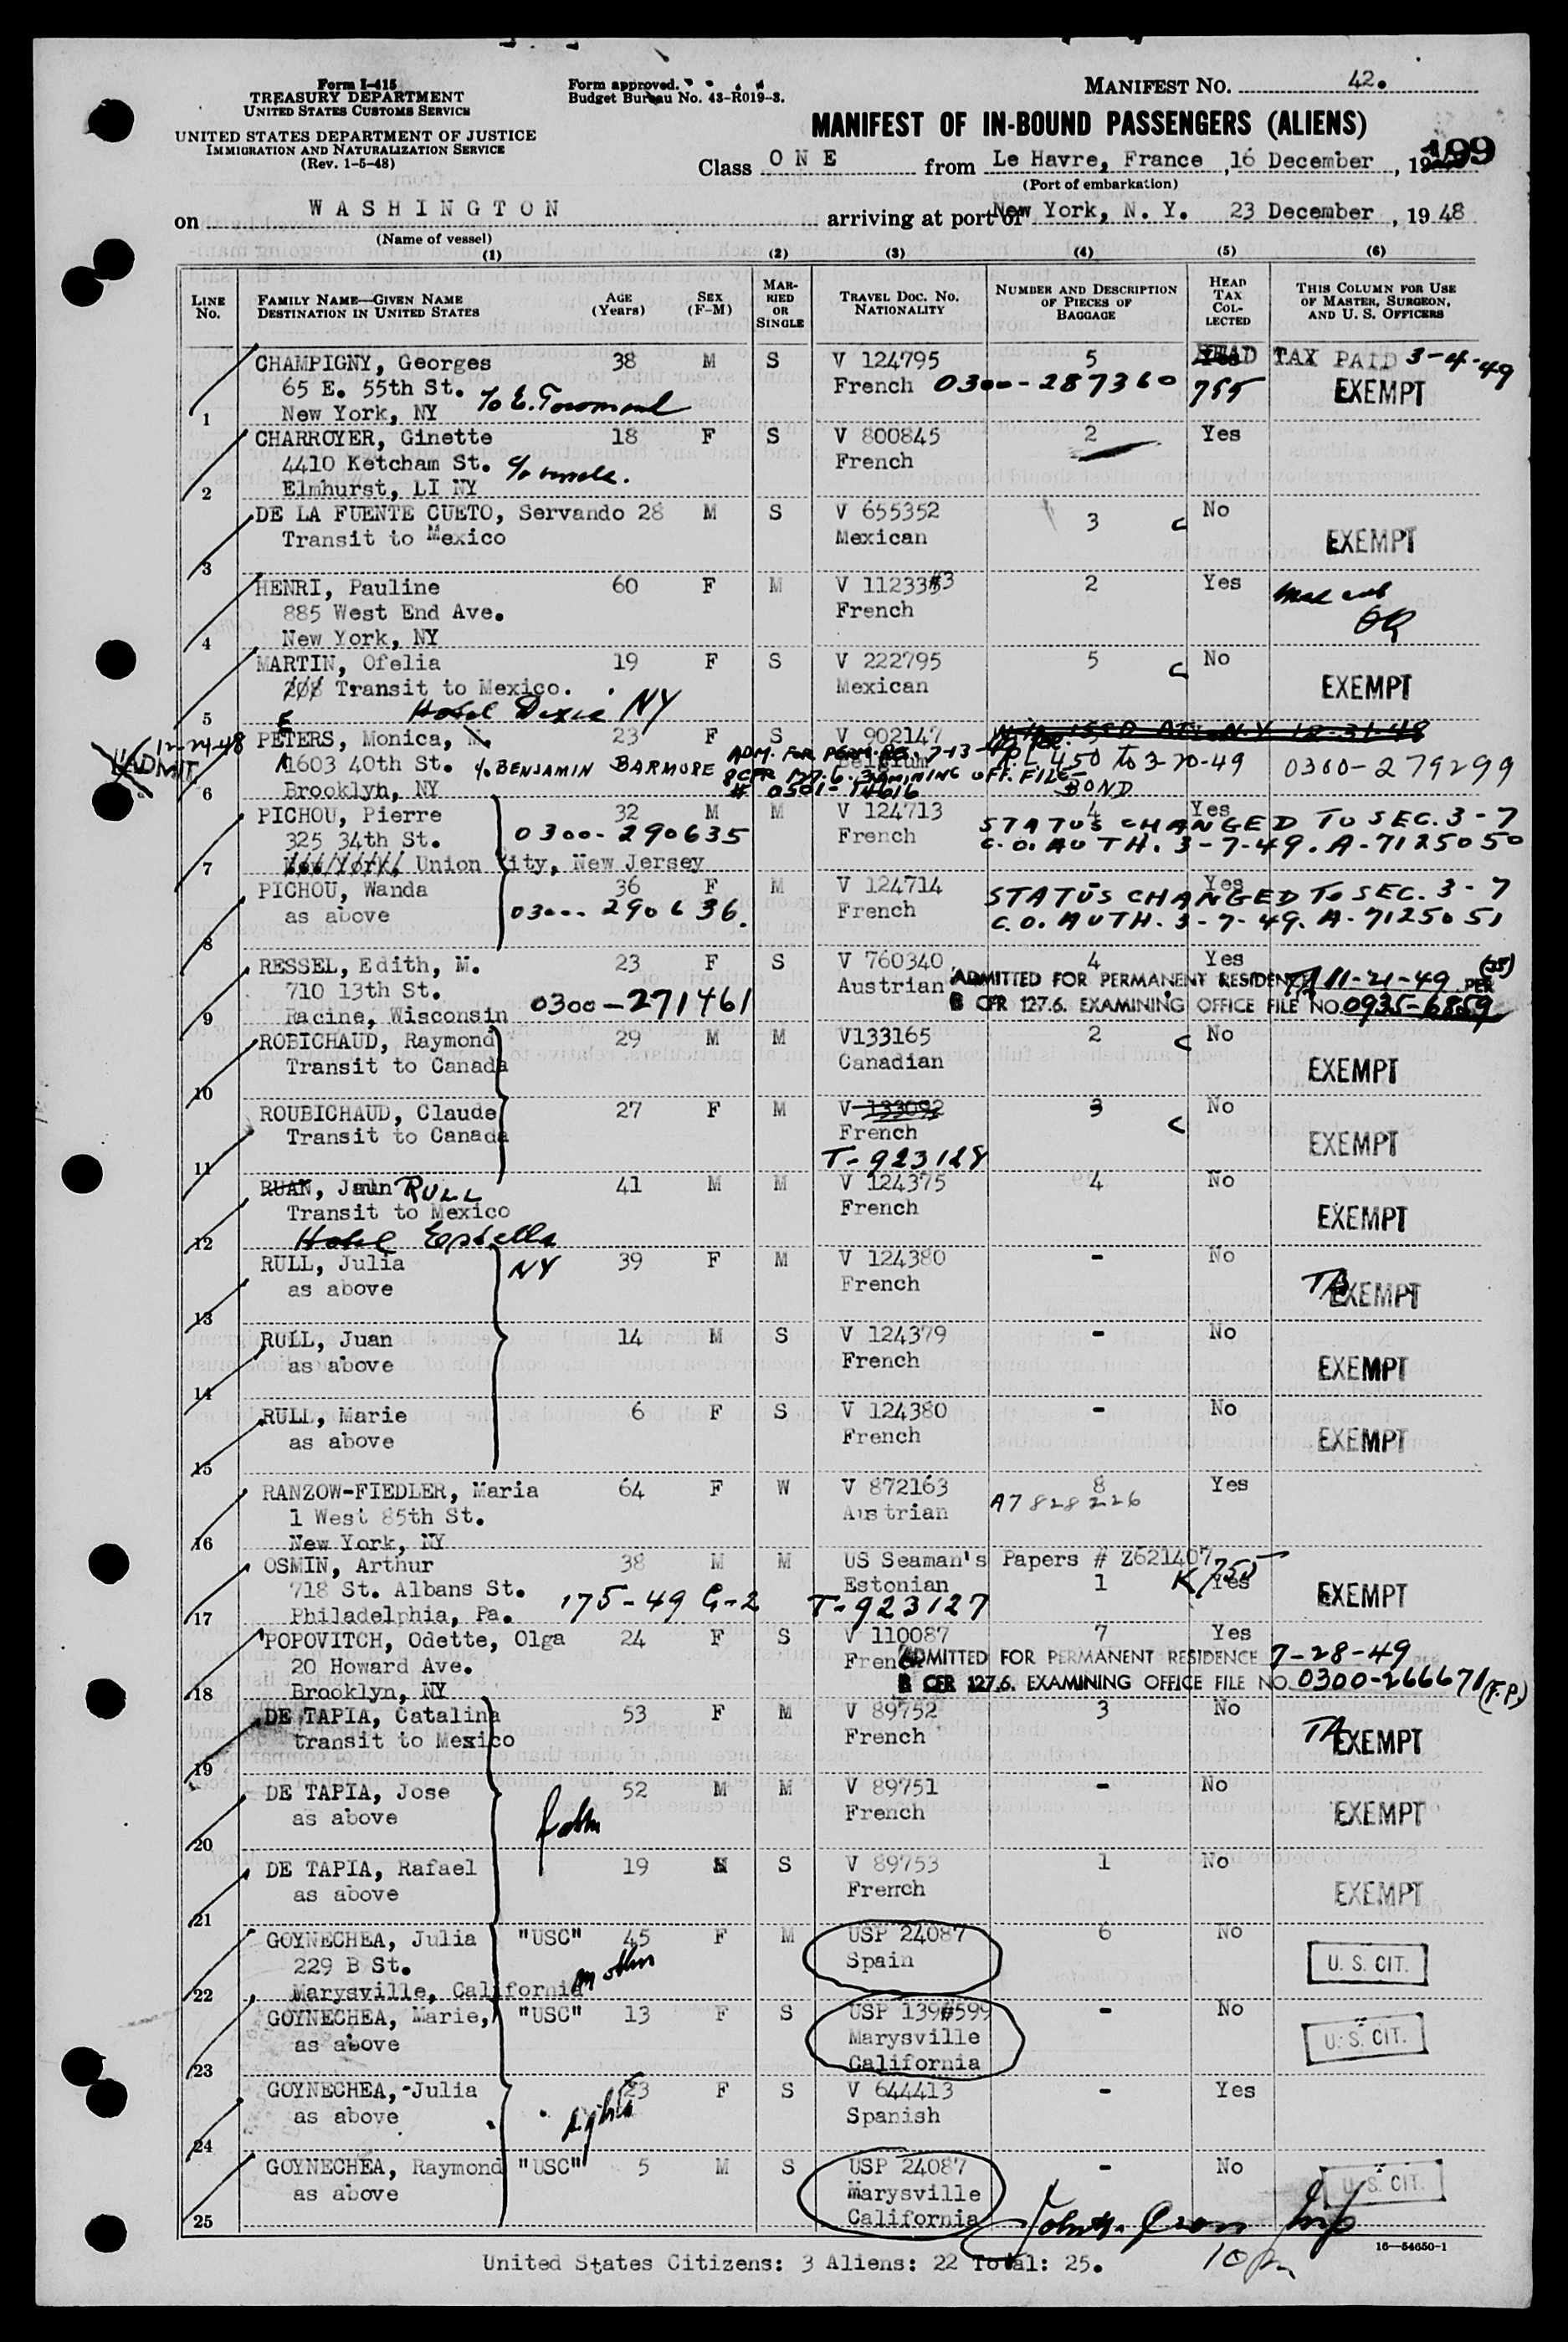 Form I-415
TREASURY DEPARTMENT
UNITED STATES CUSTOMS SERVICE
UNITED STATES DEPARTMENT OF JUSTICE
IMMIGRATION AND NATURALIZATION SERVICE
(Rev. 1-5-48)
Form approved.
Budget Bureau No. 43-R019-3.
MANIFEST NO. 42.
MANIFEST OF IN-BOUND PASSENGERS (ALIENS)
199
Class ONE from Le Havre, France, 16 December, 19
(Port of embarkation)
on WASHINGTON arriving at port of New York, N. Y. 23 December, 19 48
(Name of vessel)
(1) (2) (3) (4) (5) (6)
LINE No. FAMILY NAME—GIVEN NAME DESTINATION IN UNITED STATES AGE (Years) SEX (F-M) MARRIED OR SINGLE TRAVEL DOC. NO. NATIONALITY NUMBER AND DESCRIPTION OF PIECES OF BAGGAGE HEAD TAX COLLECTED THIS COLUMN FOR USE OF MASTER, SURGEON, AND U. S. OFFICERS
CHAMPIGNY, Georges 38 M S V 124795 5 HEAD TAX PAID 3-4-49
65 E. 55th St. French 0300-287360 755 EXEMPT
1 New York, NY
CHARROYER, Ginette 18 F S V 800845 2 Yes
4410 Ketcham St. c/o uncle. French
2 Elmhurst, LI NY
DE LA FUENTE CUETO, Servando 28 M S V 655352 3 c No
Transit to Mexico Mexican EXEMPT
3
HENRI, Pauline 60 F M V 112333 2 Yes
885 West End Ave. French OK
4 New York, NY
MARTIN, Ofelia 19 F S V 222795 5 c No
208 Transit to Mexico. Mexican EXEMPT
5 Hotel Dixie NY
12-24-48 PETERS, Monica, M. 23 F S V 902147 5
ADMIT 1603 40th St. c/o BENJAMIN BARMORE Belgium 450 to 3-20-49 0300-279299
ADM. FOR PERM. RES. 7-13-
8 CFR 127.6. EXAMINING OFF. FILE
# 0501-14616 BOND
6 Brooklyn, NY
PICHOU, Pierre 32 M M V 124713 4 Yes
325 34th St. 0300-290635 French STATUS CHANGED TO SEC. 3-7
7 New York, Union City, New Jersey C.O. AUTH. 3-7-49. A-7125050
PICHOU, Wanda 36 F M V 124714 - Yes
as above 0300-290636. French STATUS CHANGED TO SEC. 3-7
8 C.O. AUTH. 3-7-49. A-7125051
RESSEL, Edith, M. 23 F S V 760340 4 Yes
710 13th St. Austrian ADMITTED FOR PERMANENT RESIDENCE 11-21-49 PER
9 Racine, Wisconsin 0300-271461 8 CFR 127.6. EXAMINING OFFICE FILE NO. 0935-6859
ROBICHAUD, Raymond 29 M M V133165 2 c No
Transit to Canada Canadian EXEMPT
10
ROUBICHAUD, Claude 27 F M V 133092 3 c No
Transit to Canada French EXEMPT
11 T-923128
RUAN, Juan RULL 41 M M V 124375 4 No
Transit to Mexico French EXEMPT
12 Hotel Estella
RULL, Julia NY 39 F M V 124380 - No
as above French TA EXEMPT
13
RULL, Juan 14 M S V 124379 - No
as above French EXEMPT
14
RULL, Marie 6 F S V 124380 - No
as above French EXEMPT
15
RANZOW-FIEDLER, Maria 64 F W V 872163 8 Yes
1 West 85th St. Austrian A7828226
16 New York, NY
OSMIN, Arthur 38 M M US Seaman's Papers # Z621407
718 St. Albans St. Estonian 1 K/755 Yes EXEMPT
17 Philadelphia, Pa. 175-49 G-2 T-923127
POPOVITCH, Odette, Olga 24 F S V 110087 7 Yes
20 Howard Ave. French ADMITTED FOR PERMANENT RESIDENCE 7-28-49
18 Brooklyn, NY 8 CFR 127.6. EXAMINING OFFICE FILE NO. 0300-266671 (F.P.)
DE TAPIA, Catalina 53 F M V 89752 3 No
transit to Mexico French TA EXEMPT
19
DE TAPIA, Jose 52 M M V 89751 - No
as above French EXEMPT
20
DE TAPIA, Rafael 19 M S V 89753 1 No
as above French EXEMPT
21
GOYNECHEA, Julia "USC" 45 F M USP 24087 6 No
229 B St. mother Spain U. S. CIT.
22 Marysville, California
GOYNECHEA, Marie, "USC" 13 F S USP 139#599 - No
as above Marysville U. S. CIT.
23 California
GOYNECHEA, -Julia 23 F S V 644413 - Yes
as above Spanish
24
GOYNECHEA, Raymond "USC" 5 M S USP 24087 - No
as above Marysville U. S. CIT.
25 California
United States Citizens: 3 Aliens: 22 Total: 25.
16—54650-1